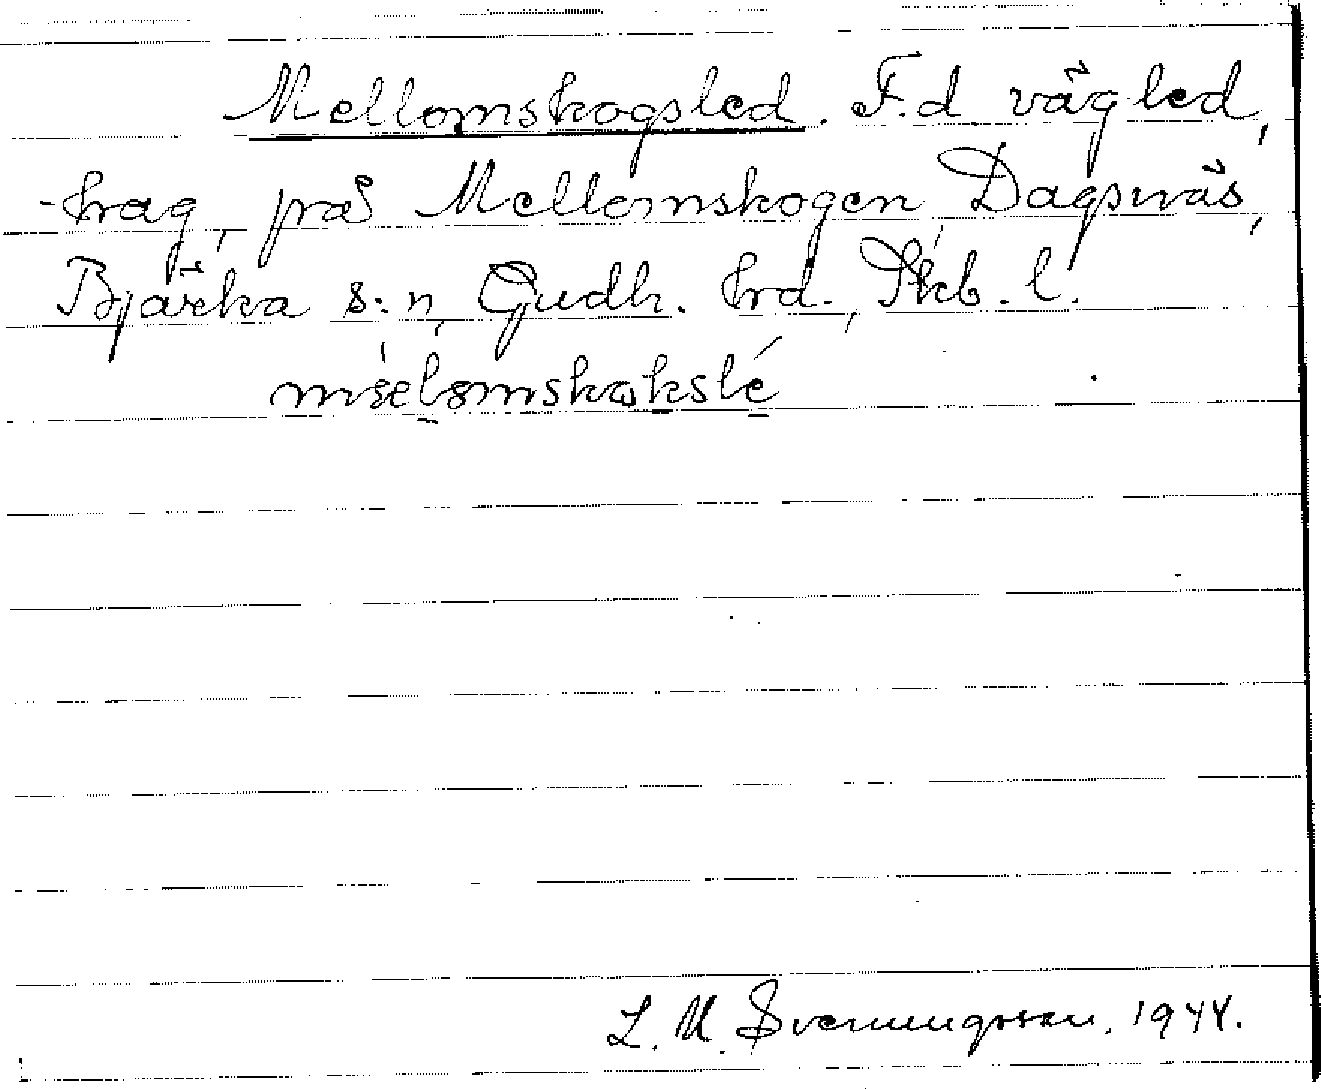 Mellomskogsled. F.d vägled,
-hag, på Mellomskogen, Dagsnäs,
Bjärka s:n, Gudh. hrd., Skb. l.
L. M. Svenungsson. 1944.